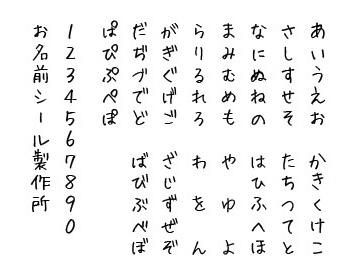 あいうえお かきくけこ
さしすせそ たちつてと
なにぬねの はひふへほ
まみむめも や ゆ よ
らりるれろ わ を ん
がぎぐげご ざじずぜぞ
だぢづでど ばびぶべぼ
ぱぴぷぺぽ
1234567890
お名前シール製作所